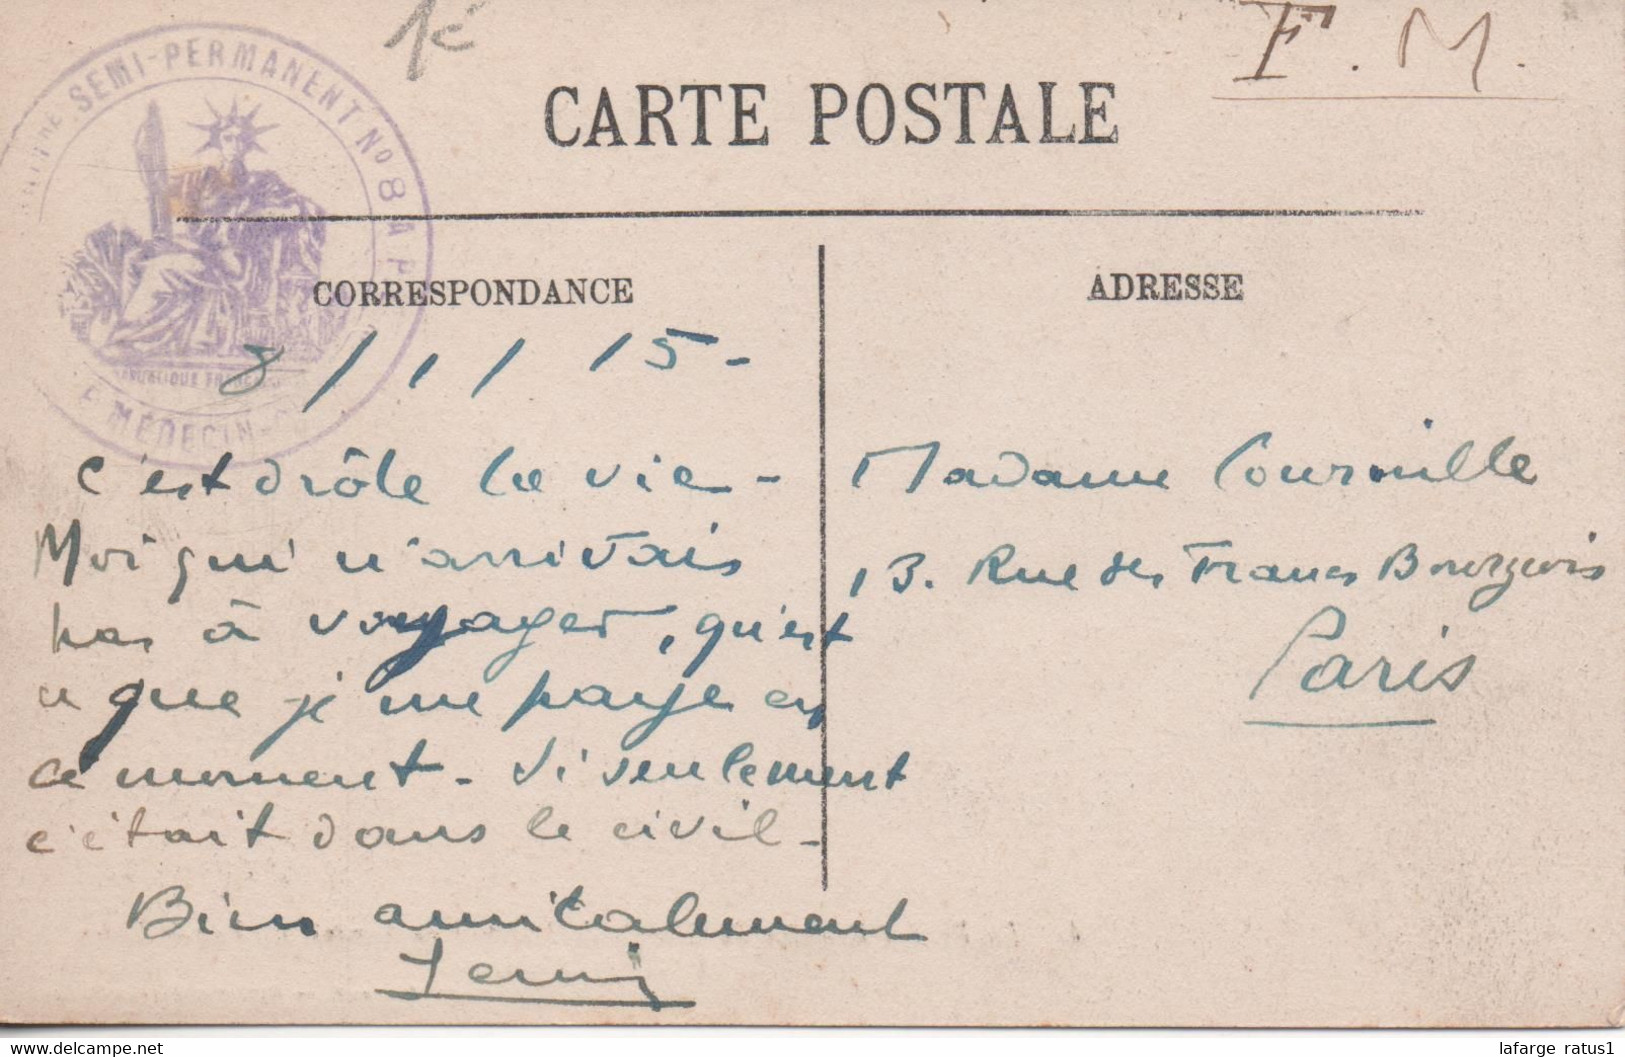 1c
F. M.
SEMI-PERMANENT No 8 A P
RÉPUBLIQUE FRANÇ
MÉDECIN-C
CARTE POSTALE
CORRESPONDANCE
8/1/15-
C'est drôle la vie -
Moi qui n'arrivais
pas à voyager, qu'est
ce que je me paye en
ce moment - Si seulement
c'était dans le civil -
Bien amicalement
ADRESSE
Madame
13. Rue des Francs Bourgeois
Paris
lafarge ratus1